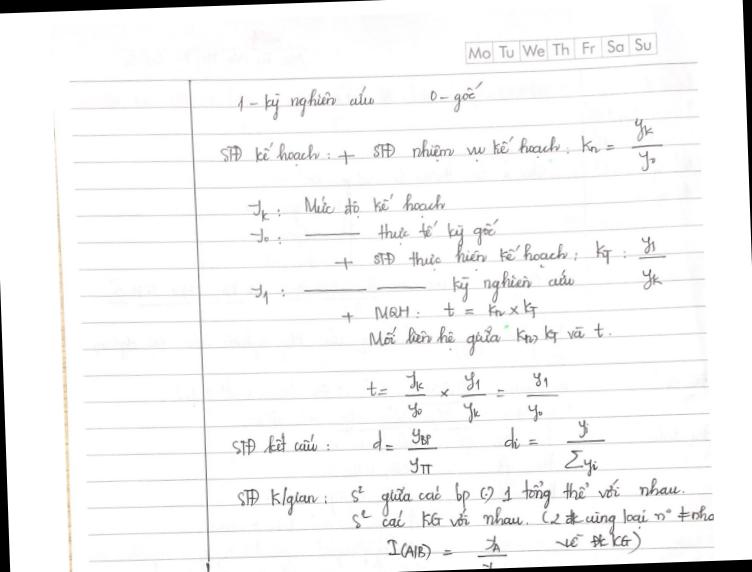 Mo Tu We Th Fr Sa Su
1 - kỳ nghiên cứu 0 - gốc
STĐ kế hoạch: + STĐ nhiệm vụ kế hoạch: Kn = yk / y0
yk: Mức độ kế hoạch
y0: —— thực tế kỳ gốc
+ STĐ thực hiện kế hoạch: KT : y1 / yk
y1: —— —— kỳ nghiên cứu
+ MQH: t = Kn x KT
Mối liên hệ giữa Kn, KT và t.
t = yk / y0 x y1 / yk = y1 / y0
STĐ kết cấu: d = yBP / yTT di = yi / Σyi
STĐ k/gian: s² giữa các bp (:) 1 tổng thể với nhau.
s² các KG với nhau. (2 cùng loại n° ≠ nha
I(A/B) = về ĐK KG)